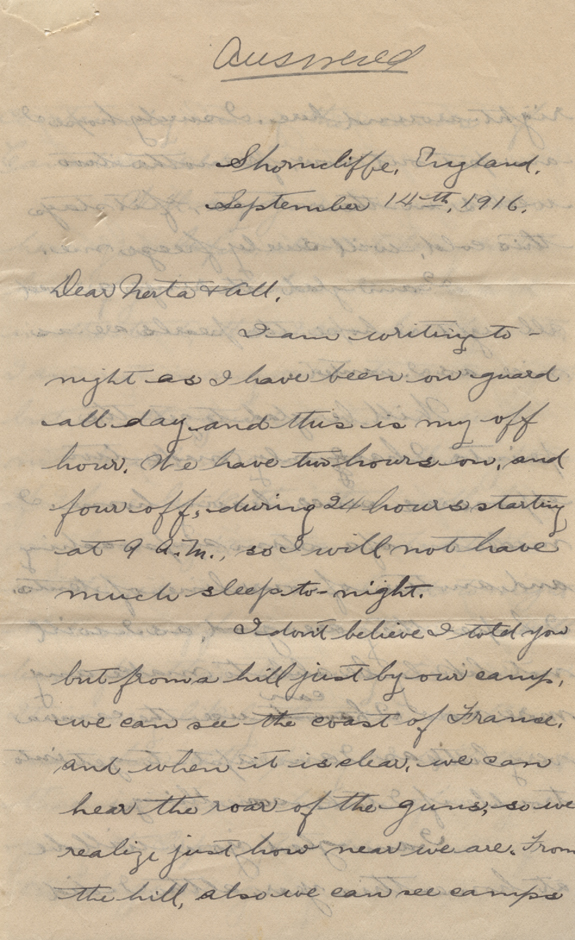 Answered
Shorncliffe, England.
September 14th, 1916.
Dear Nerta & All,
I am writing to-
night as I have been on guard
all day and this is my off
hour. We have two hours on, and
four off, during 24 hours starting
at 9 A.M., so I will not have
much sleep to-night.
I don't believe I told you
but from a hill just by our camp,
we can see the coast of France.
and when it is clear, we can
hear the roar of the guns, so we
realize just how near we are. From
the hill, also we can see camps